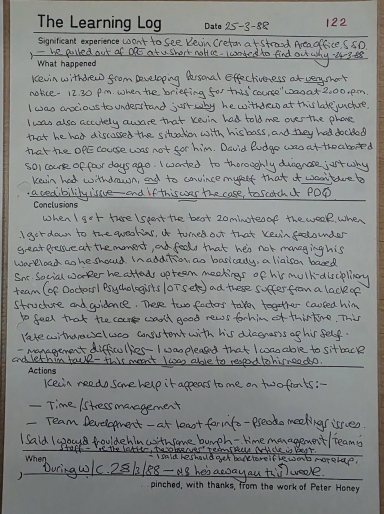 The Learning Log Date 25-3-88 122
Significant experience went to see Kevin Creton at Strand Area office, SSD
– he pulled out of DPE at v short notice – I wanted to find out why
What happened
Kevin withdrew from Developing Personal Effectiveness at very short
notice – 12.30 p.m. when the briefing for this 'course' was at 2.00 p.m.
I was anxious to understand just why he withdrew at this late juncture.
I was also acutely aware that Kevin had told me over the phone
that he had discussed the situation with his boss, and they had decided
that the DPE course was not for him. David Rudgo was at the aborted
SOI course of four days ago. I wanted to thoroughly diagnose just why
Kevin had withdrawn, and to convince myself that it wasn't due to
a credibility issue – and if this was the case, to scotch it PDQ
Conclusions
When I got there I spent the best 20 minutes of the week, when
I got down to the questions. It turned out that Kevin feels under
great pressure at the moment, and feels that he's not managing his
workload as he should. In addition, as basically, a liaison based
Snr. Social worker he attends upteem meetings of his multi-disciplinary
team (of Doctors/Psychologists/OTs etc) and these suffer from a lack of
structure and guidance. These two factors taken together caused him
to feel that the course wasn't good news for him at this time. This
late withdrawal was consistent with his diagnosis of his self
– management difficulties – I was pleased that I was able to sit back
and let him talk – this meant I was able to respond to his needs.
Actions
Kevin needs some help it appears to me on two fronts:-
– Time/Stress management
– Team Development – at least for info – pseudo meetings issues.
I said I would provide him with some bumph – time management/Team
– I said he should get back to me if he wants more help.
When During W/C. 28/3/88 – NB he's away all this week.
pinched, with thanks, from the work of Peter Honey